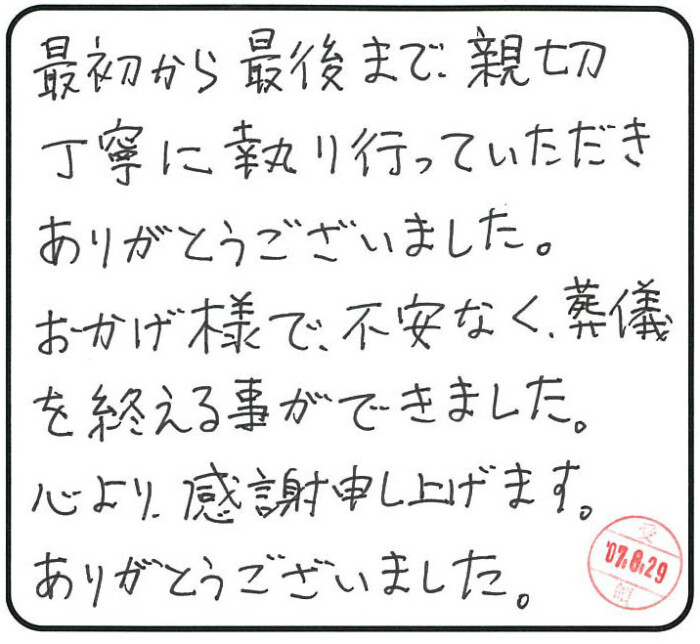 最初から最後まで、親切
丁寧に執り行っていただき
ありがとうございました。
おかげ様で、不安なく、葬儀
を終える事ができました。
心より、感謝申し上げます。
ありがとうございました。
受
'07.8.29
領